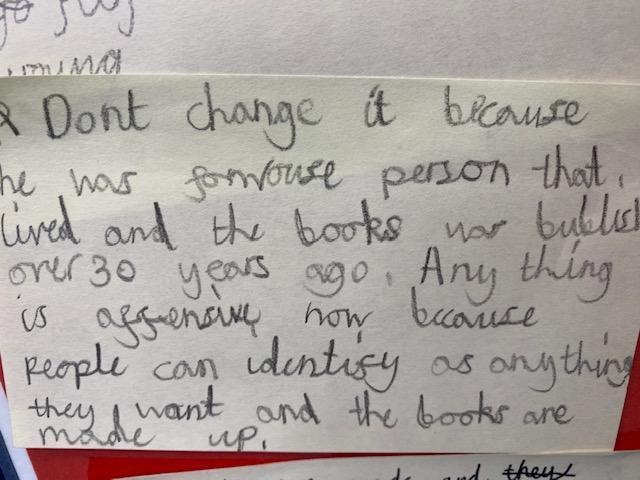 Dont change it because
he was fomouse person that
lived and the books war bublish
over 30 years ago. Any thing
is affensive now because
people can identify as anything
they want and the books are
made up.
they